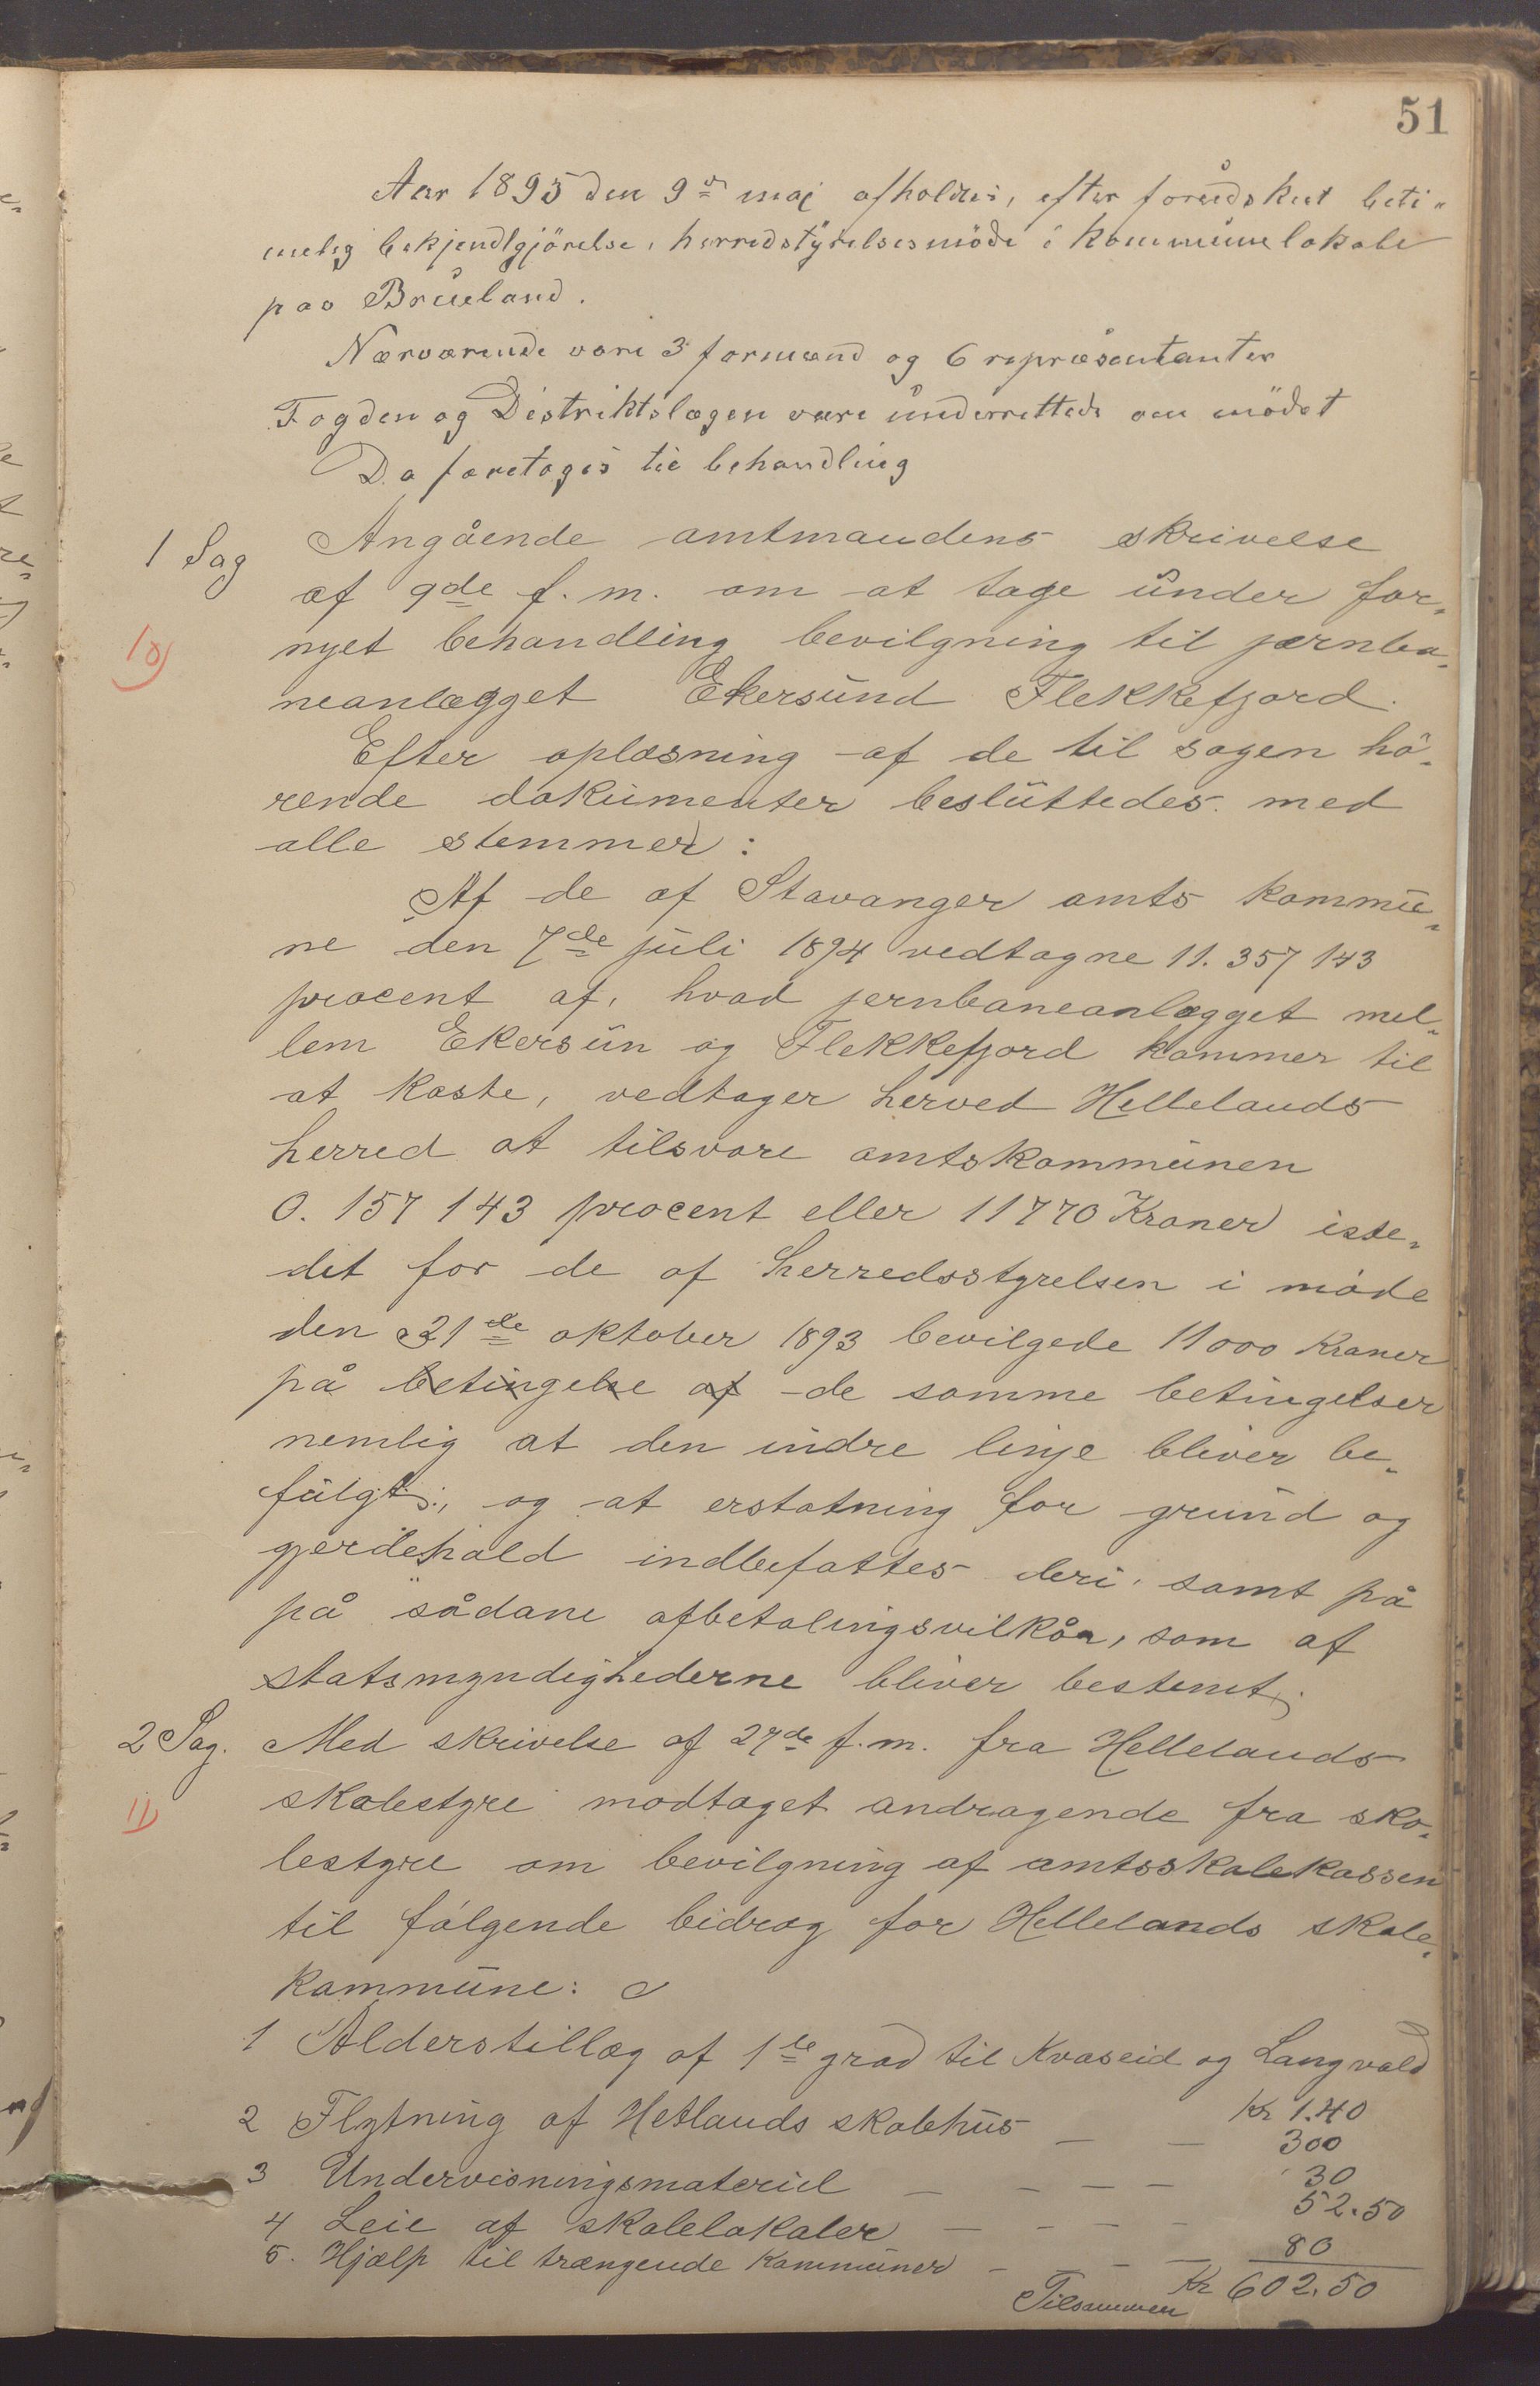 51
Aar 1895 den 9de maj afholdtes, efter forudskut beti-
melig bekjendtgjörelse, herredstyrelsesmöde i kommunelokale
paa Brueland.
Nærværende vare 3 formænd og 6 repræsentanter
Fogden og Distriktslægen vare underrettede om mödet
Da foretoges til behandling
1 Sag Angående amtmandens skrivelse
af 9de f. m. om at tage under for-
10) nyet behandling bevilgning til jernba-
neanlægget Ekersund Flekkefjord.
Efter oplæsning af de til sagen hö-
rende dokumenter besluttedes med
alle stemmer:
Af de af Stavanger amts kommu-
ne den 7de juli 1894 vedtagne 11.357 143
procent af, hvad jernbaneanlægget mel-
lem Ekersun og Flekkefjord kommer til
at koste, vedtager herved Hellelands
herred at tilsvare amtskommunen
0. 157 143 procent eller 11770 Kroner iste-
det for de af herredsstyrelsen i möde
den 21de oktober 1893 bevilgede 11000 kroner
på betingelse af de samme betingelser
nemlig at den indre linje bliver be-
fulgt, og at erstatning for grund og
gjerdehold indbefattes deri, samt på
på sådane afbetalingsvilkår, som af
statsmyndighederne bliver bestemt.
2 Sag. Med skrivelse af 27de f. m. fra Hellelands
11) skolestyre modtaget andragende fra sko-
lestyre om bevilgning af amtsskolekassen
til fölgende bidrag for Hellelands skole-
kommune:
1 Alderstillæg af 1ste grad til Kvaseid og Langvald
Kr 1.40
2 Flytning af Hetlands skolehus — — 300
3 Undervisningsmateriel — — — — 30
4 Leie af skolelokaler — — — — 52.50
5. Hjælp til trængende kommuner — — — 80
Tilsammen Kr 602.50